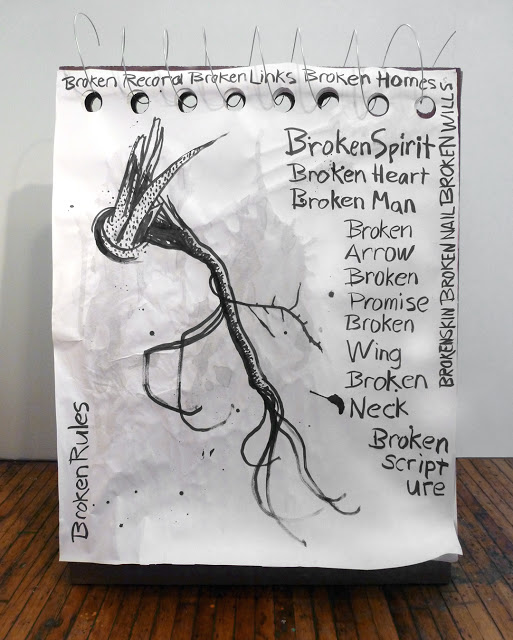 Broken Record Broken Links Broken Homes
Broken Spirit
Broken Heart
Broken Man
Broken
Arrow
Broken
Promise
Broken
Wing
Broken
Neck
Broken
script
ure
BROKEN SKIN BROKEN NAIL BROKEN WILLS
Broken Rules